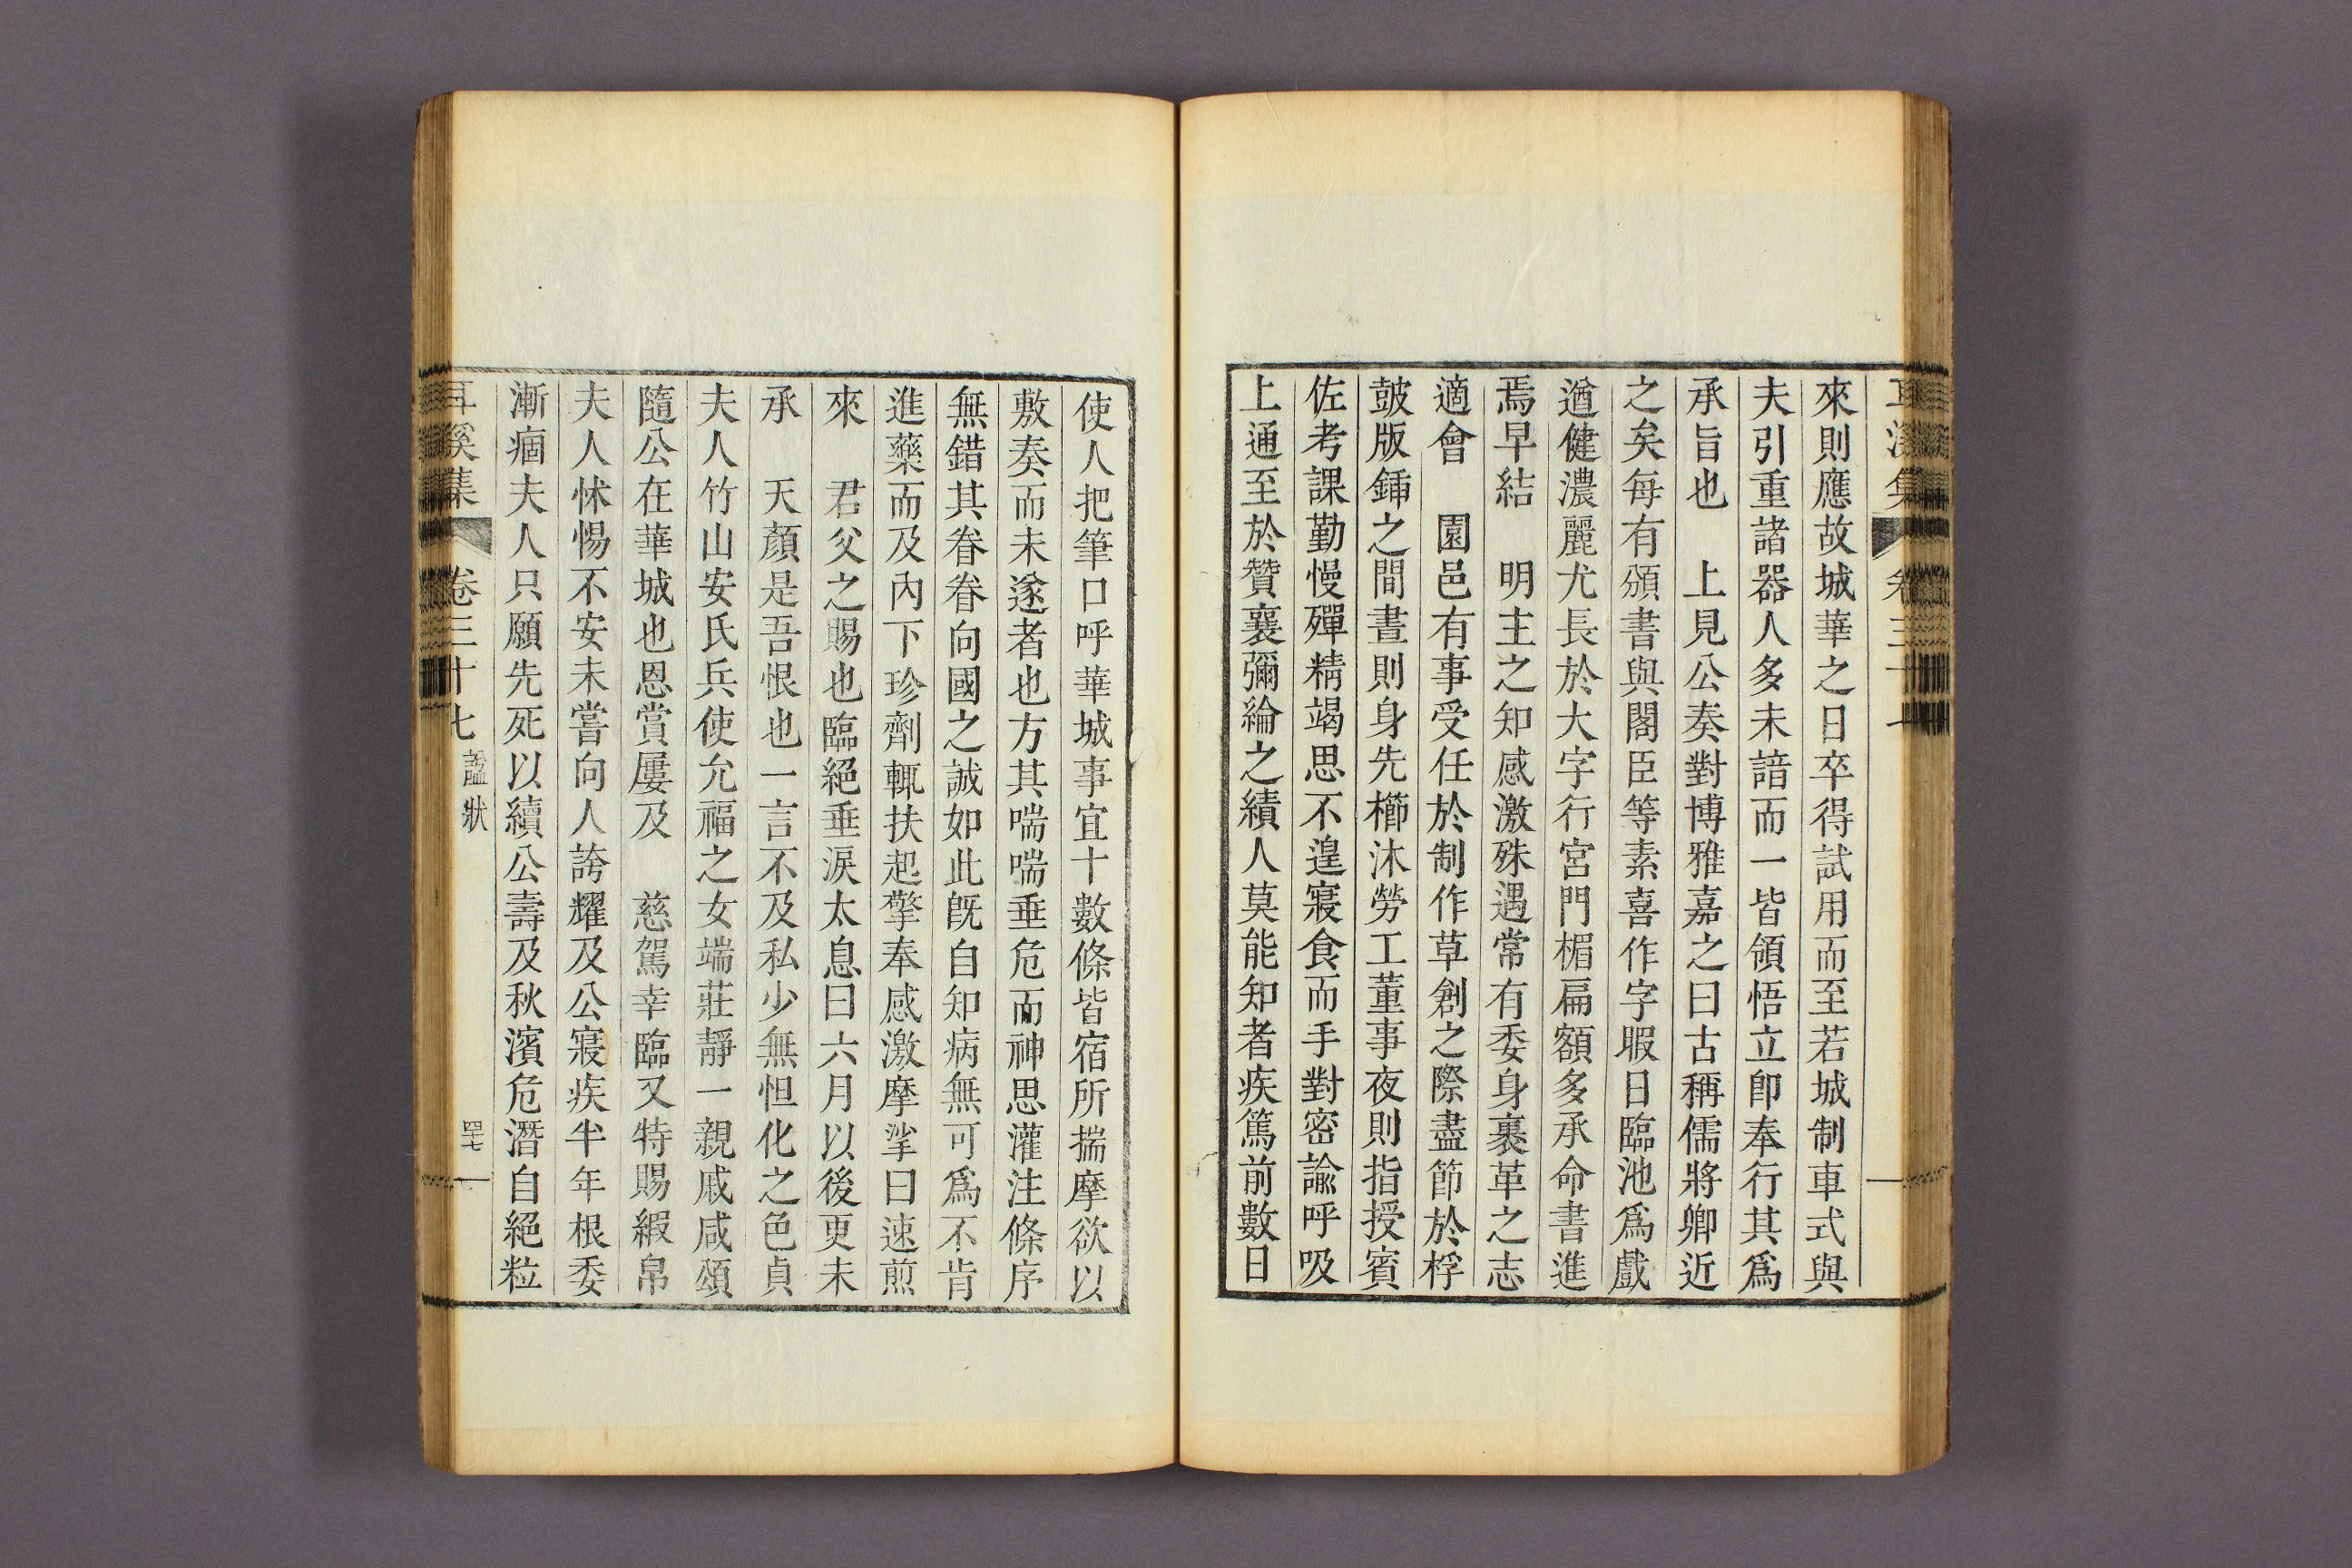 來則應故城華之日卒得試用而至若城制車式與
夫引重諸器人多未諳而一皆領悟立卽奉行其爲
承旨也 上見公奏對博雅嘉之曰古稱儒將卿近
之矣每有頒書與閣臣等素喜作字暇日臨池爲戲
遒健濃麗尤長於大字行宮門楣扁額多承命書進
焉早結 明主之知感激殊遇常有委身裹革之志
適會 園邑有事受任於制作草創之際盡節於桴
鼓版鍤之間晝則身先櫛沐勞工董事夜則指授賓
佐考課勤慢殫精竭思不遑寢食而手對密諭呼吸
上通至於贊襄彌綸之績人莫能知者疾篤前數日
使人把筆口呼華城事宜十數條皆宿所揣摩欲以
敷奏而未遂者也方其喘喘垂危而神思灌注條序
無錯其眷眷向國之誠如此旣自知病無可爲不肯
進藥而及內下珍劑輒扶起擎奉感激摩挲曰速煎
來 君父之賜也臨絕垂淚太息曰六月以後更未
承 天顏是吾恨也一言不及私少無怛化之色貞
夫人竹山安氏兵使允福之女端莊靜一親戚咸頌
隨公在華城也恩賞屢及 慈駕幸臨又特賜緞帛
夫人怵惕不安未嘗向人誇耀及公寢疾半年根委
漸痼夫人只願先死以續公壽及秋濱危潛自絕粒
耳溪集 卷三十七 諡狀 四十七